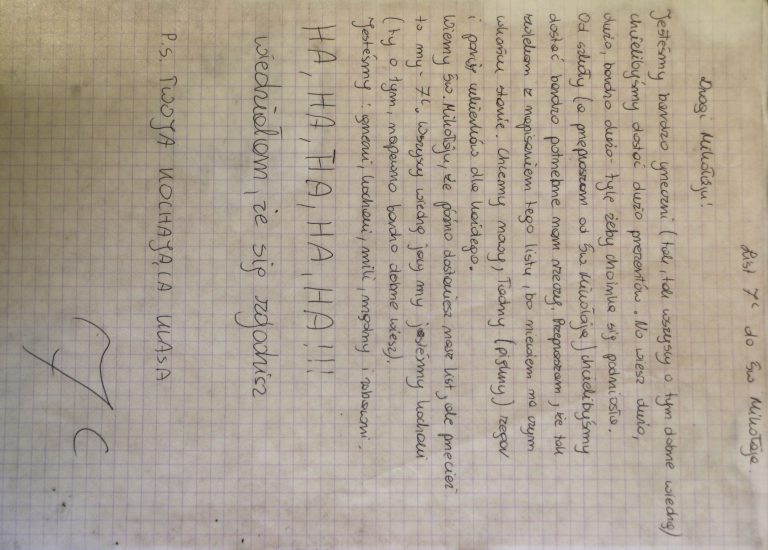 List 7c do Św Mikołaja.
Drogi Mikołaju!
Jesteśmy bardzo grzeczni (tak, tak wszyscy o tym dobrze wiedzą)
chcielibyśmy dostać dużo prezentów. No wiesz dużo,
dużo, bardzo dużo tyle żeby choinka się podniosła.
Od szkoły (a przepraszam od Św Mikołaja) chcielibyśmy
dostać bardzo potrzebne nam rzeczy. Przepraszam, że tak
zwlekam z napisaniem tego listu, bo niewiem na czym
skończyłam. Chcemy nowy, ładny (piękny) zegar
i parę uśmiechów dla każdego.
Wiemy Św. Mikołaju, że późno dostaniesz nasz list, ale przecież
to my - 7c. Wszyscy wiedzą jacy my jesteśmy kochani
(ty o tym, napewno bardzo dobrze wiesz).
Jesteśmy: grzeczni, kochani, mili, mądrzy i zabawni,
HA, HA, HA, HA, HA!!!
wiedziałam, że się zgodzisz
P.S. TWOJA KOCHAJĄCA KLASA
7c